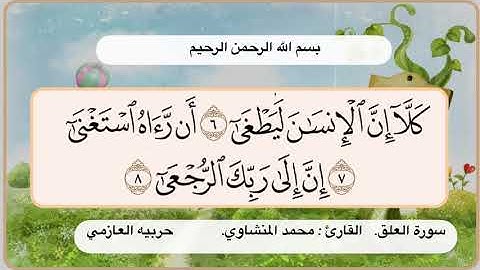 بسم الله الرحمن الرحيم
كَلَّآ إِنَّ ٱلْإِنسَـٰنَ لَيَطْغَىٰٓ ٦ أَن رَّءَاهُ ٱسْتَغْنَىٰٓ
٧ إِنَّ إِلَىٰ رَبِّكَ ٱلرُّجْعَىٰٓ ٨
سورة العلق. القارئ : محمد المنشاوي. حربيه العازمي